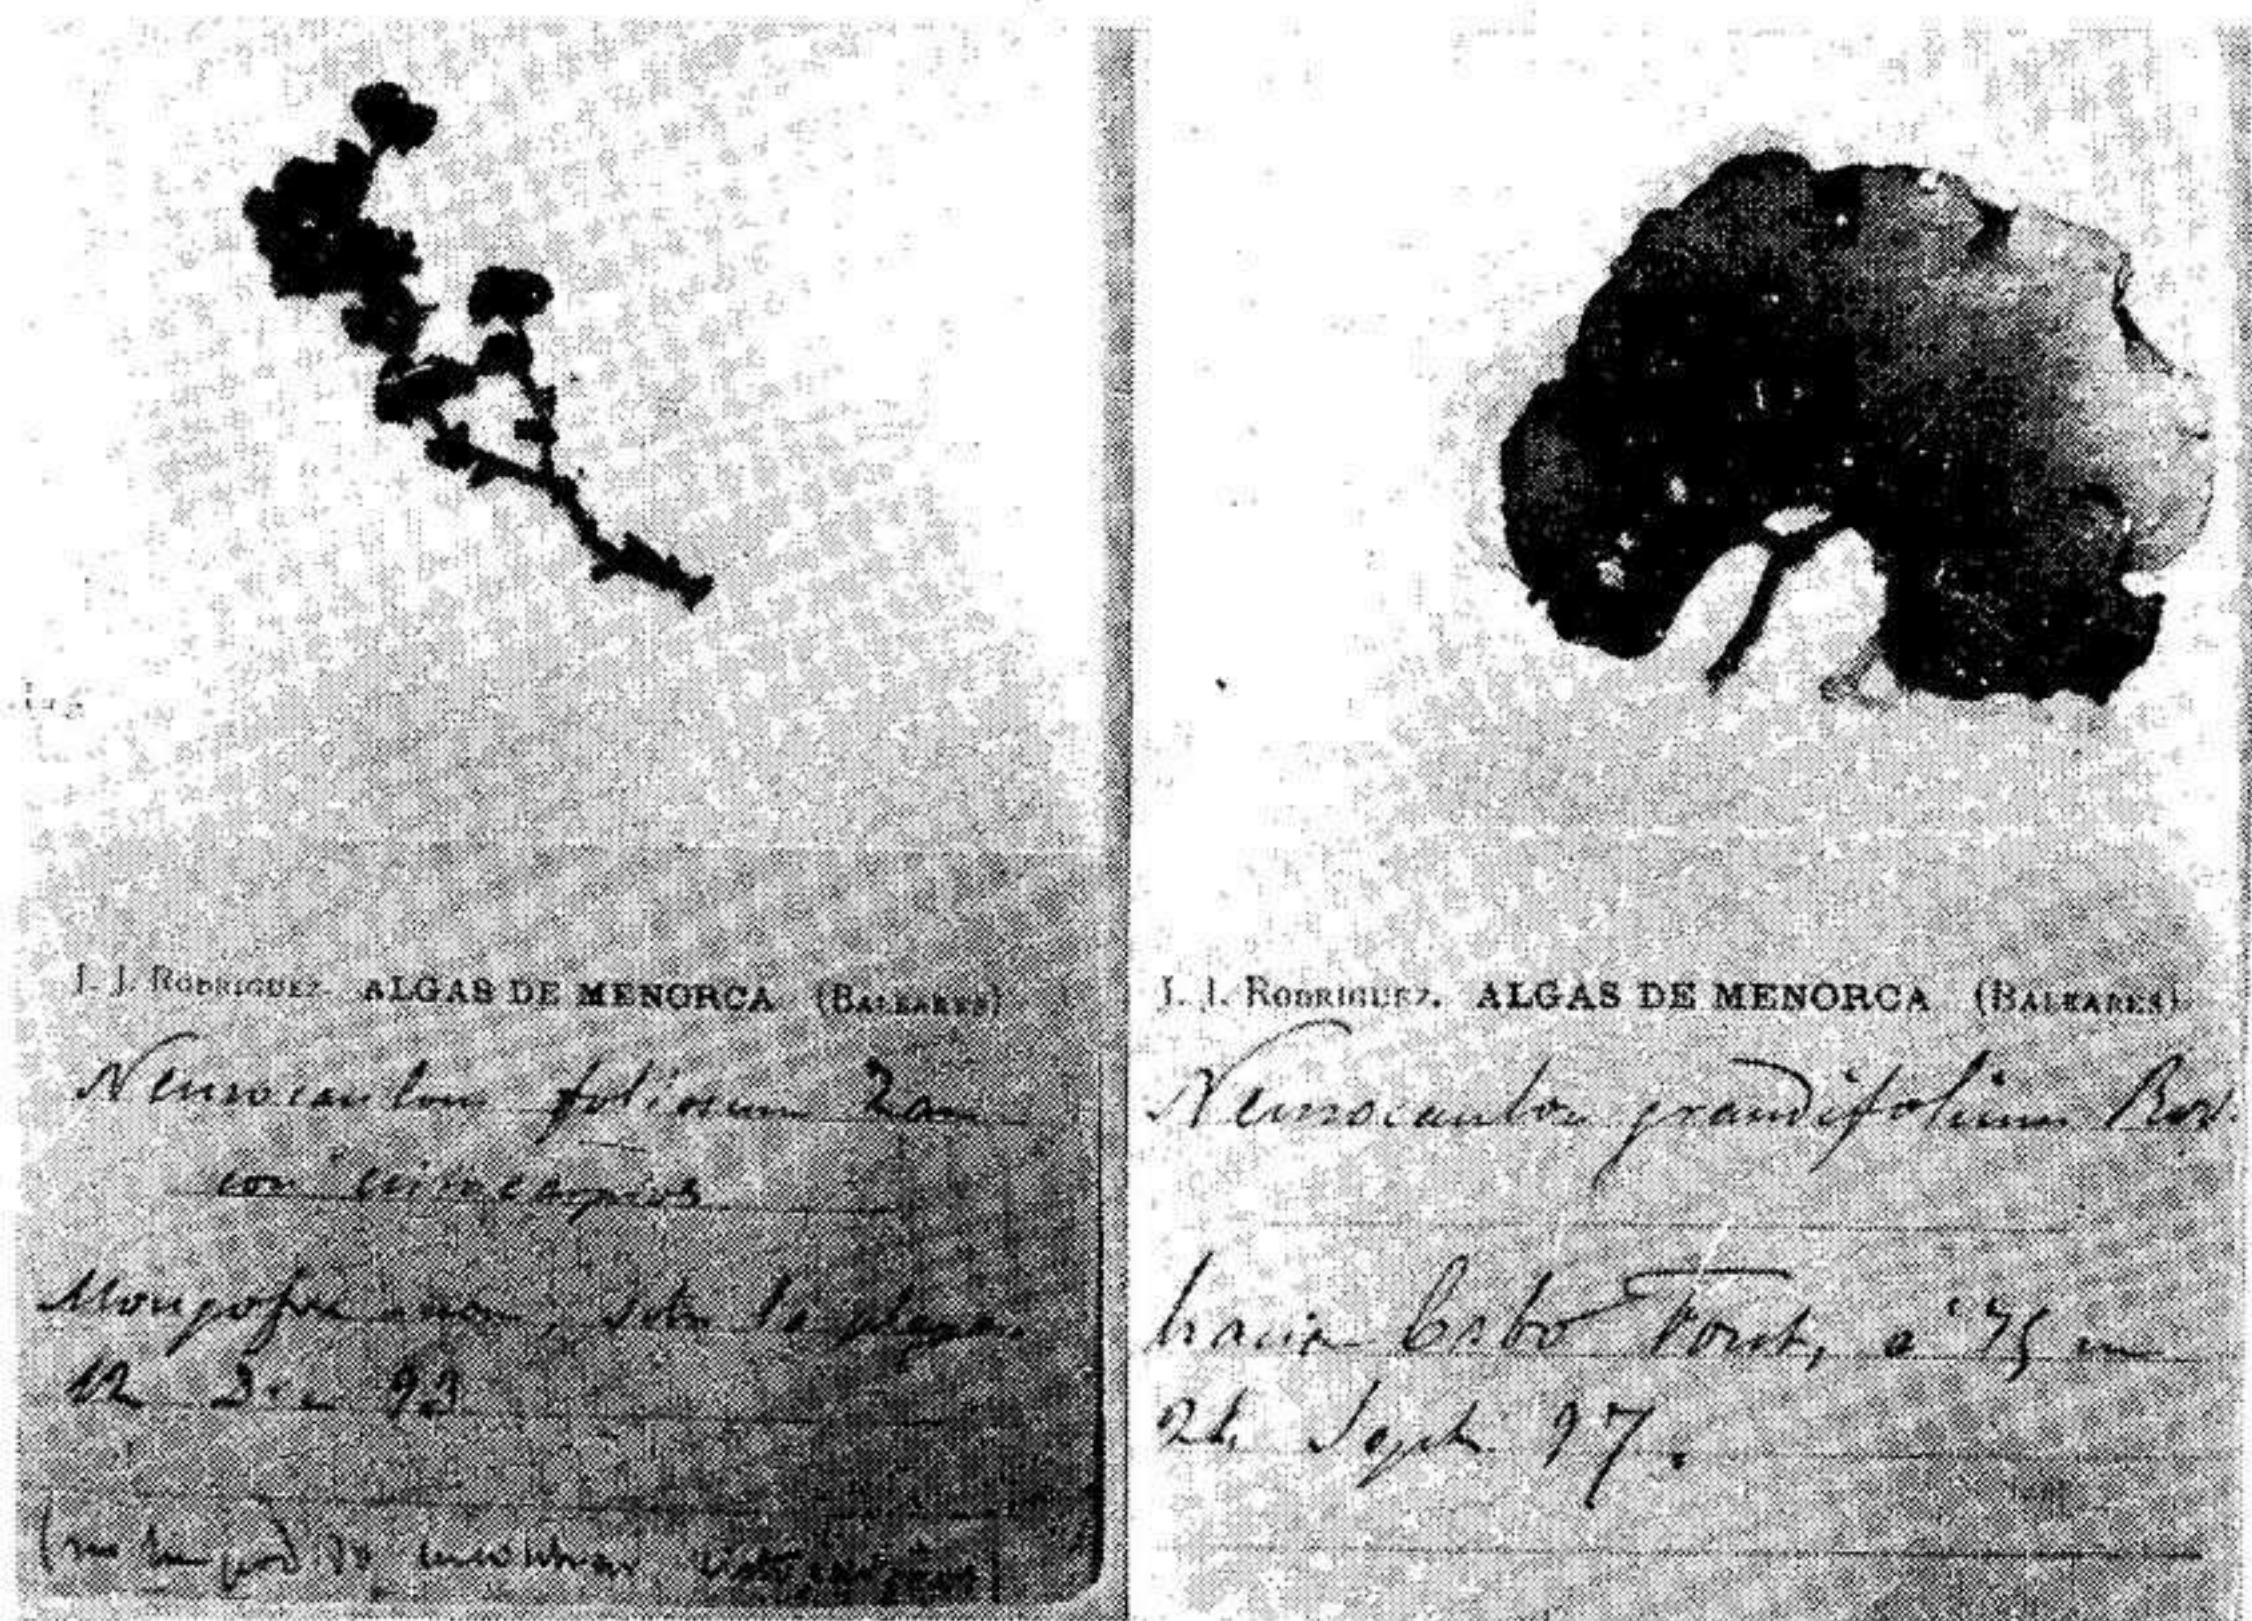 J. J. RODRIGUEZ. ALGAS DE MENORCA (BALEARES)
Neurocaulon foliosum Zan
con cistocarpios
Mongofre nou, sobre la playa.
12 Dec 93
J. J. RODRIGUEZ. ALGAS DE MENORCA (BALEARES)
Neurocaulon grandifolium Rod.
hacia Crbo Forch, a 75 m
24 Sept 97.